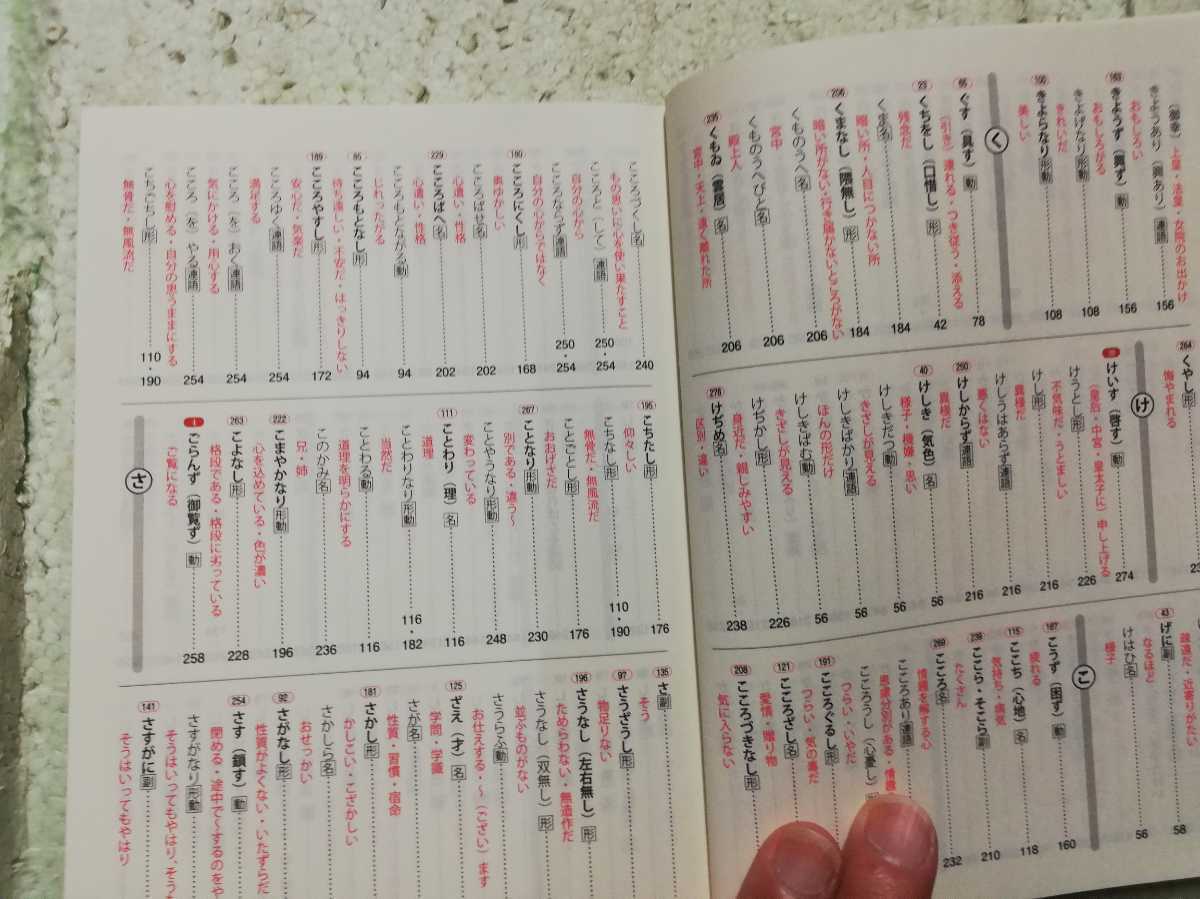 (御幸)上皇・法皇・女院のお出かけ
きようあり(興あり)連語 156
おもしろい
163 きようず(興ず)動 156
おもしろがる
きよげなり形動 108
きれいだ
100 きよらなり形動 108
美しい
く
65 ぐす(具す)動 78
(引き)連れる・つき従う・添える
23 くちをし(口惜し)形 42
残念だ
くま名 184
暗い所・人目につかない所
206 くまなし(隈無し)形 184
暗い所がない・行き届かないところがない
くものうへ名 206
宮中
くものうへびと名 206
殿上人
235 くもゐ(雲居)名 206
宮中・天上・遠く離れた所
264 くやし形
悔やまれる
け
けいす(啓す)動 274
(皇后・中宮・皇太子に)申し上げる
けうとし形 226
不気味だ・うとましい
けし形 216
異様だ
けしうはあらず連語 216
悪くはない
250 けしからず連語 216
異様だ
40 けしき(気色)名 56
様子・機嫌・思い
けしきだつ動 56
きざしが見える
けしきばかり連語 56
ほんの形だけ
けしきばむ動 56
きざしが見える
けぢかし形 226
身近だ・親しみやすい
276 けぢめ名 238
区別・違い
疎遠だ・近寄りがたい
43 げに副 58
なるほど
けはひ名 56
様子
こ
167 こうず(困ず)動 160
疲れる
115 ここち(心地)名 118
気持ち・病気
239 ここら・そこら副 210
たくさん
269 こころ名 232
情趣を解する心
こころあり連語
思慮分別がある・情趣
こころうし(心憂し)
つらい・いやだ
191 こころぐるし形
つらい・気の毒だ
121 こころざし名
愛情・贈り物
208 こころづきなし形
気に入らない
こころづくし名 240
もの思いに心を使い果たすこと
こころと(して)連語 250・254
自分の心から
こころならず連語 250・254
自分の心からではなく
180 こころにくし形 168
奥ゆかしい
こころばせ名 202
心遣い・性格
229 こころばへ名 202
心遣い・性格
こころもとながる動 94
じれったがる
85 こころもとなし形 94
待ち遠しい・不安だ・はっきりしない
189 こころやすし形 172
安心だ・気楽だ
こころゆく連語 254
満足する
こころ(を)おく連語 254
気にかける・用心する
こころ(を)やる連語 254
心を慰める・自分の思うままにする
こちごちし形 110・190
無骨だ・無風流だ
195 こちたし形 176
仰々しい
こちなし形 110・190
無骨だ・無風流だ
ことごとし形 176
おおげさだ
267 ことなり形動 230
別である・違う〜
ことやうなり形動 248
変わっている
111 ことわり(理)名 116
道理
ことわりなり形動 116・182
当然だ
ことわる動 116
道理を明らかにする
このかみ名 236
兄・姉
222 こまやかなり形動 196
心を込めている・色が濃い
263 こよなし形 228
格段である・格段に劣っている
ごらんず(御覧ず)動 258
ご覧になる
さ
135 さ副
そう
97 さうざうし形
物足りない
196 さうなし(左右無し)形
ためらわない・無造作だ
さうなし(双無し)形
並ぶものがない
さうらふ動
お仕えする・〜(ござい)ます
125 ざえ(才)名
学問・学識
さが名
性質・習慣・宿命
181 さかし形
かしこい・こざかしい
さかしら名
おせっかい
92 さがなし形
性質がよくない・いたずらだ
254 さす(鎖す)動
閉める・途中で〜するのをや
さすがなり形動
そうはいってもやはり、そう
141 さすがに副
そうはいってもやはり